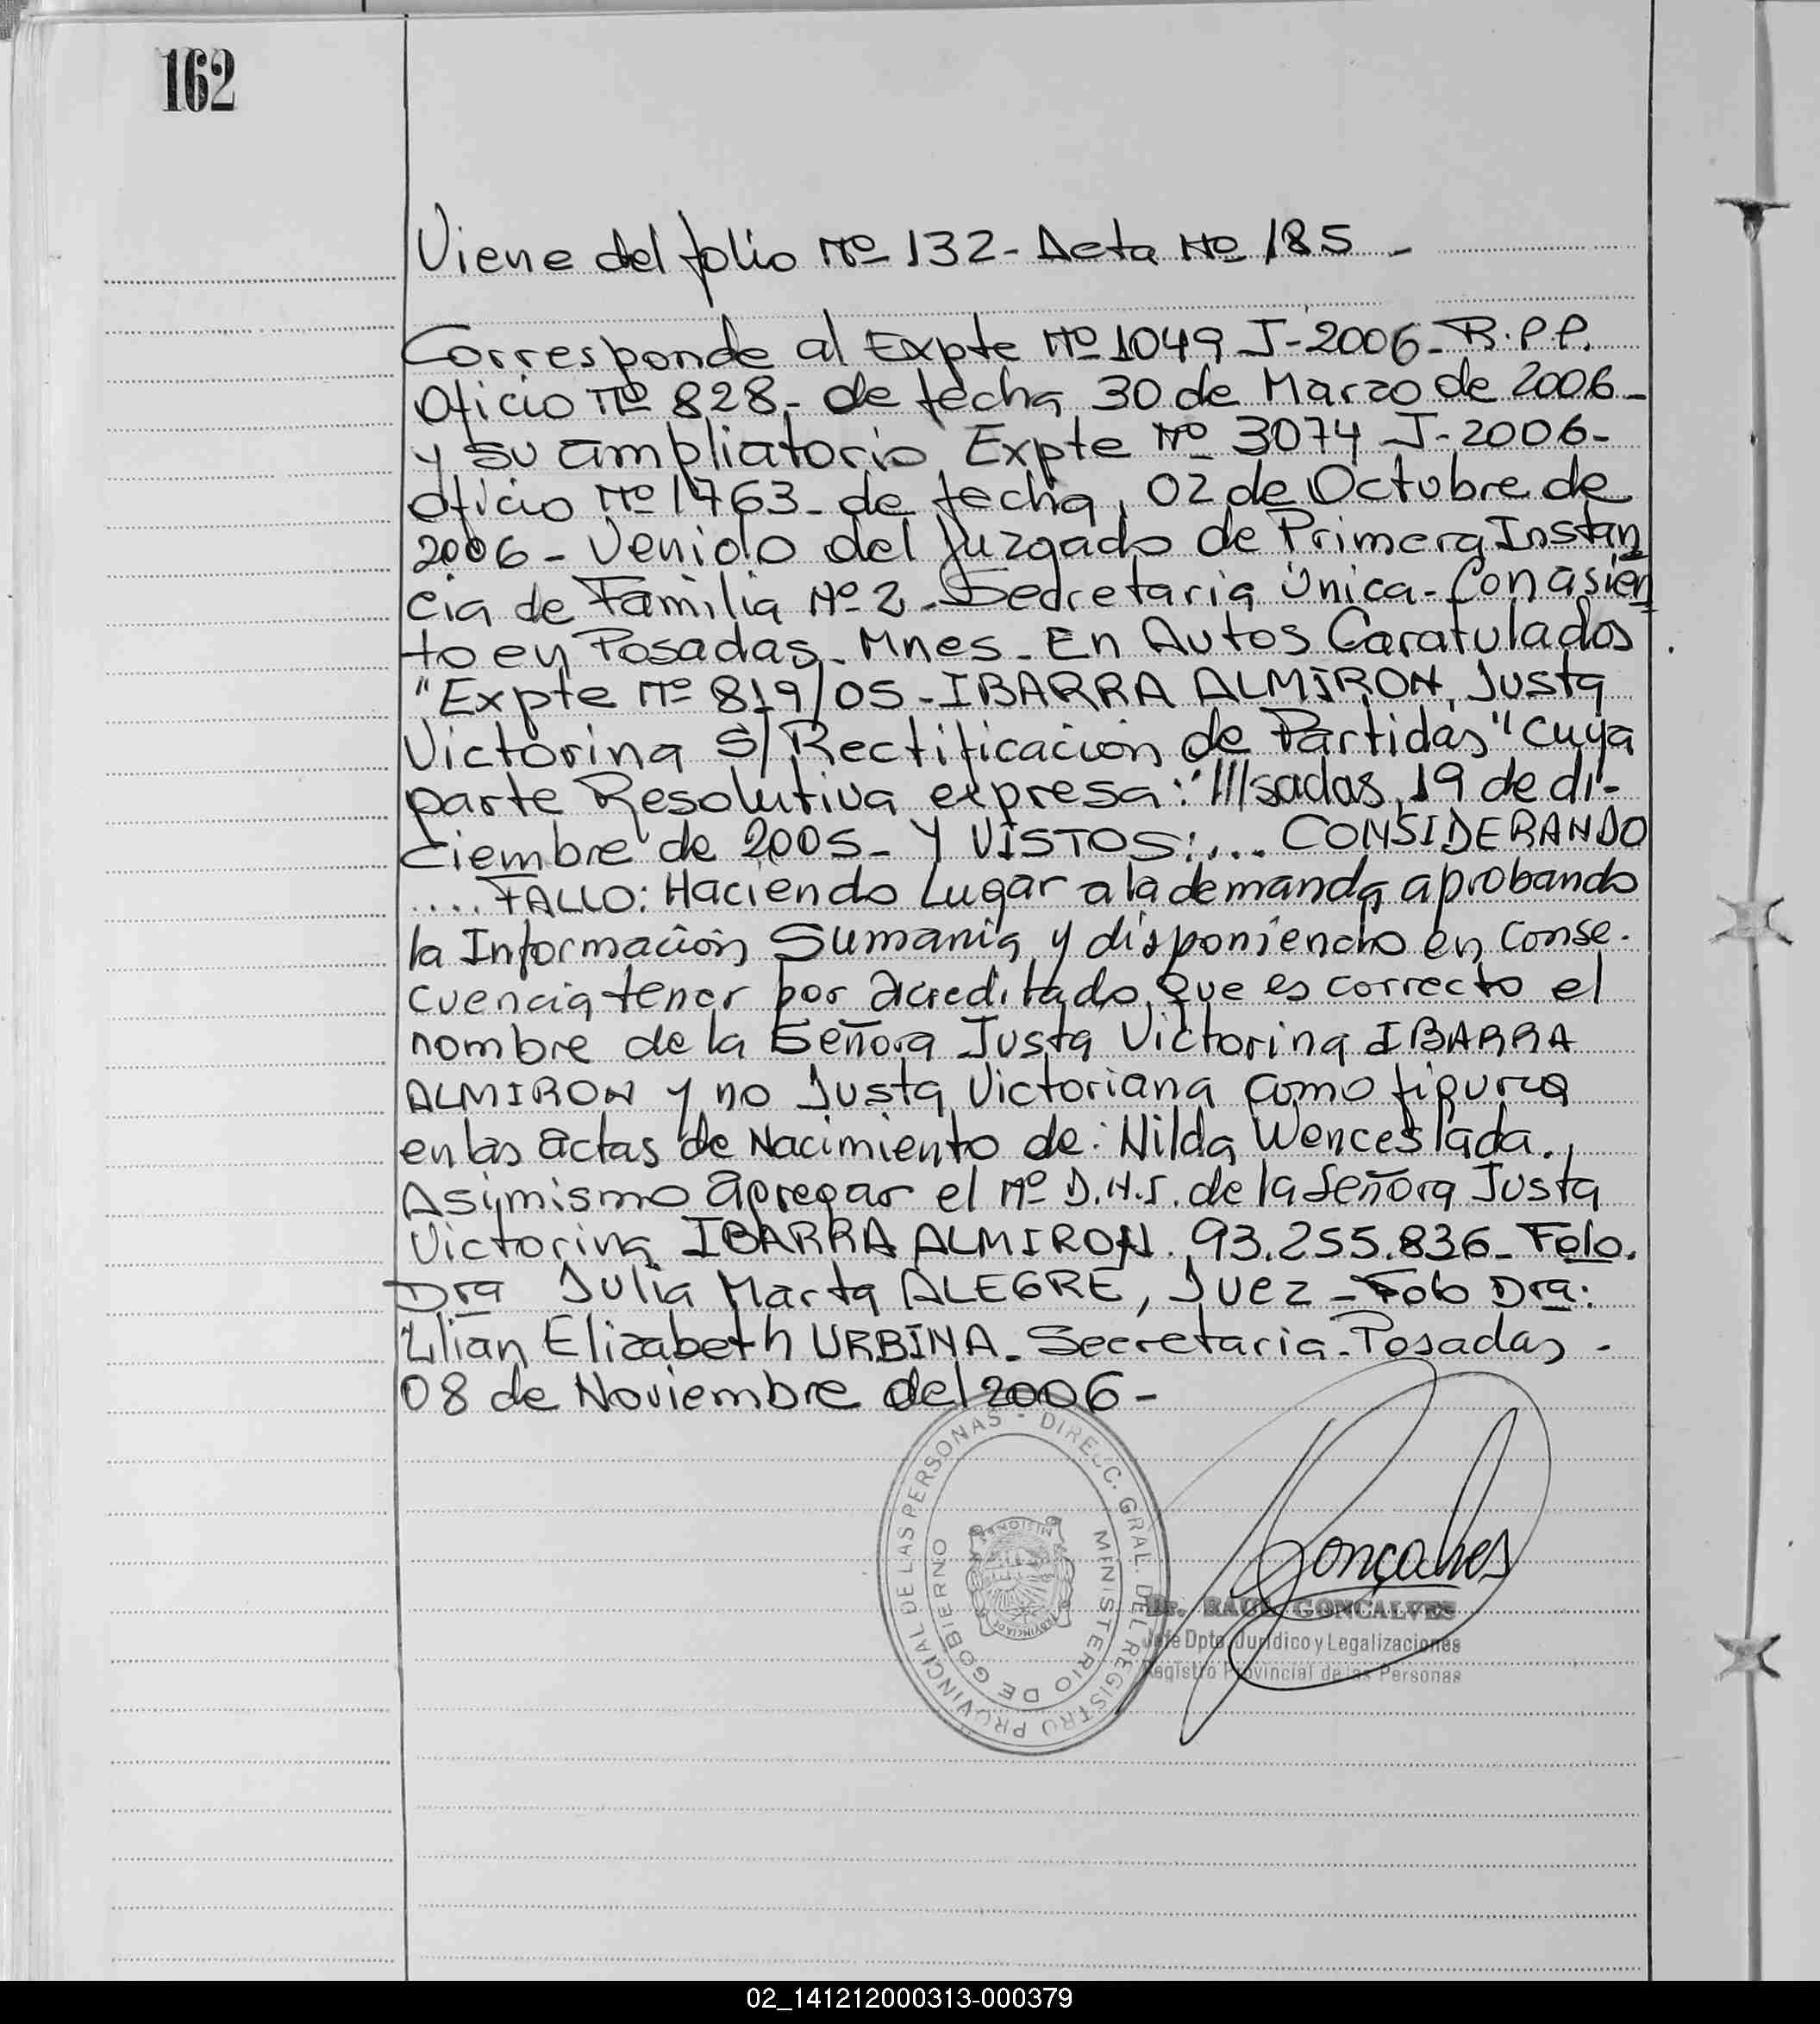 162
Viene del folio Nº 132- Acta Nº 185 -
Corresponde al Expte Nº 1049 J-2006- R.P.P.
Oficio Nº 828- de fecha 30 de Marzo de 2006-
y su ampliatorio Expte Nº 3074 J-2006-
Oficio Nº 1763- de fecha, 02 de Octubre de
2006- Venido del Juzgado de Primera Instan
cia de Familia Nº 2- Secretaria Única- Con asien
to en Posadas- Mnes- En Autos Caratulados
"Expte Nº 819/05- IBARRA ALMIRON, Justa
Victorina S/ Rectificación de Partidas" cuya
parte Resolutiva expresa: "///sadas, 19 de di-
ciembre de 2005- Y VISTOS:... CONSIDERANDO
.... FALLO: Haciendo Lugar a la demanda aprobando
la Información Sumaria y disponiendo en Conse-
cuencia tener por acreditado que es correcto el
nombre de la Señora Justa Victorina IBARRA
ALMIRON y no Justa Victoriana como figura
en las actas de Nacimiento de: Nilda Wenceslada.,
Asimismo agregar el Nº D.N.I. de la Señora Justa
Victorina IBARRA ALMIRON. 93.255.836- Fdo.
Dra Julia Marta ALEGRE, Juez - Fdo Dra:
Lilian Elizabeth URBINA- Secretaria- Posadas -
08 de Noviembre del 2006-
DIRECC. GRAL. DEL REGISTRO PROVINCIAL DE LAS PERSONAS -
MINISTERIO DE GOBIERNO
MISIONES
PROVINCIA DE
Gonçalves
Dr. RAUL GONCALVES
Jefe Dpto. Jurídico y Legalizaciones
Registro Provincial de las Personas
02_141212000313-000379